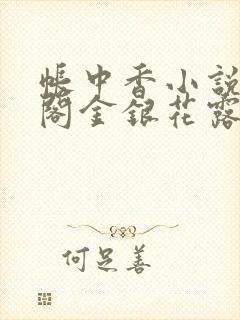 帐中香小説
阁金銀花露
何足善